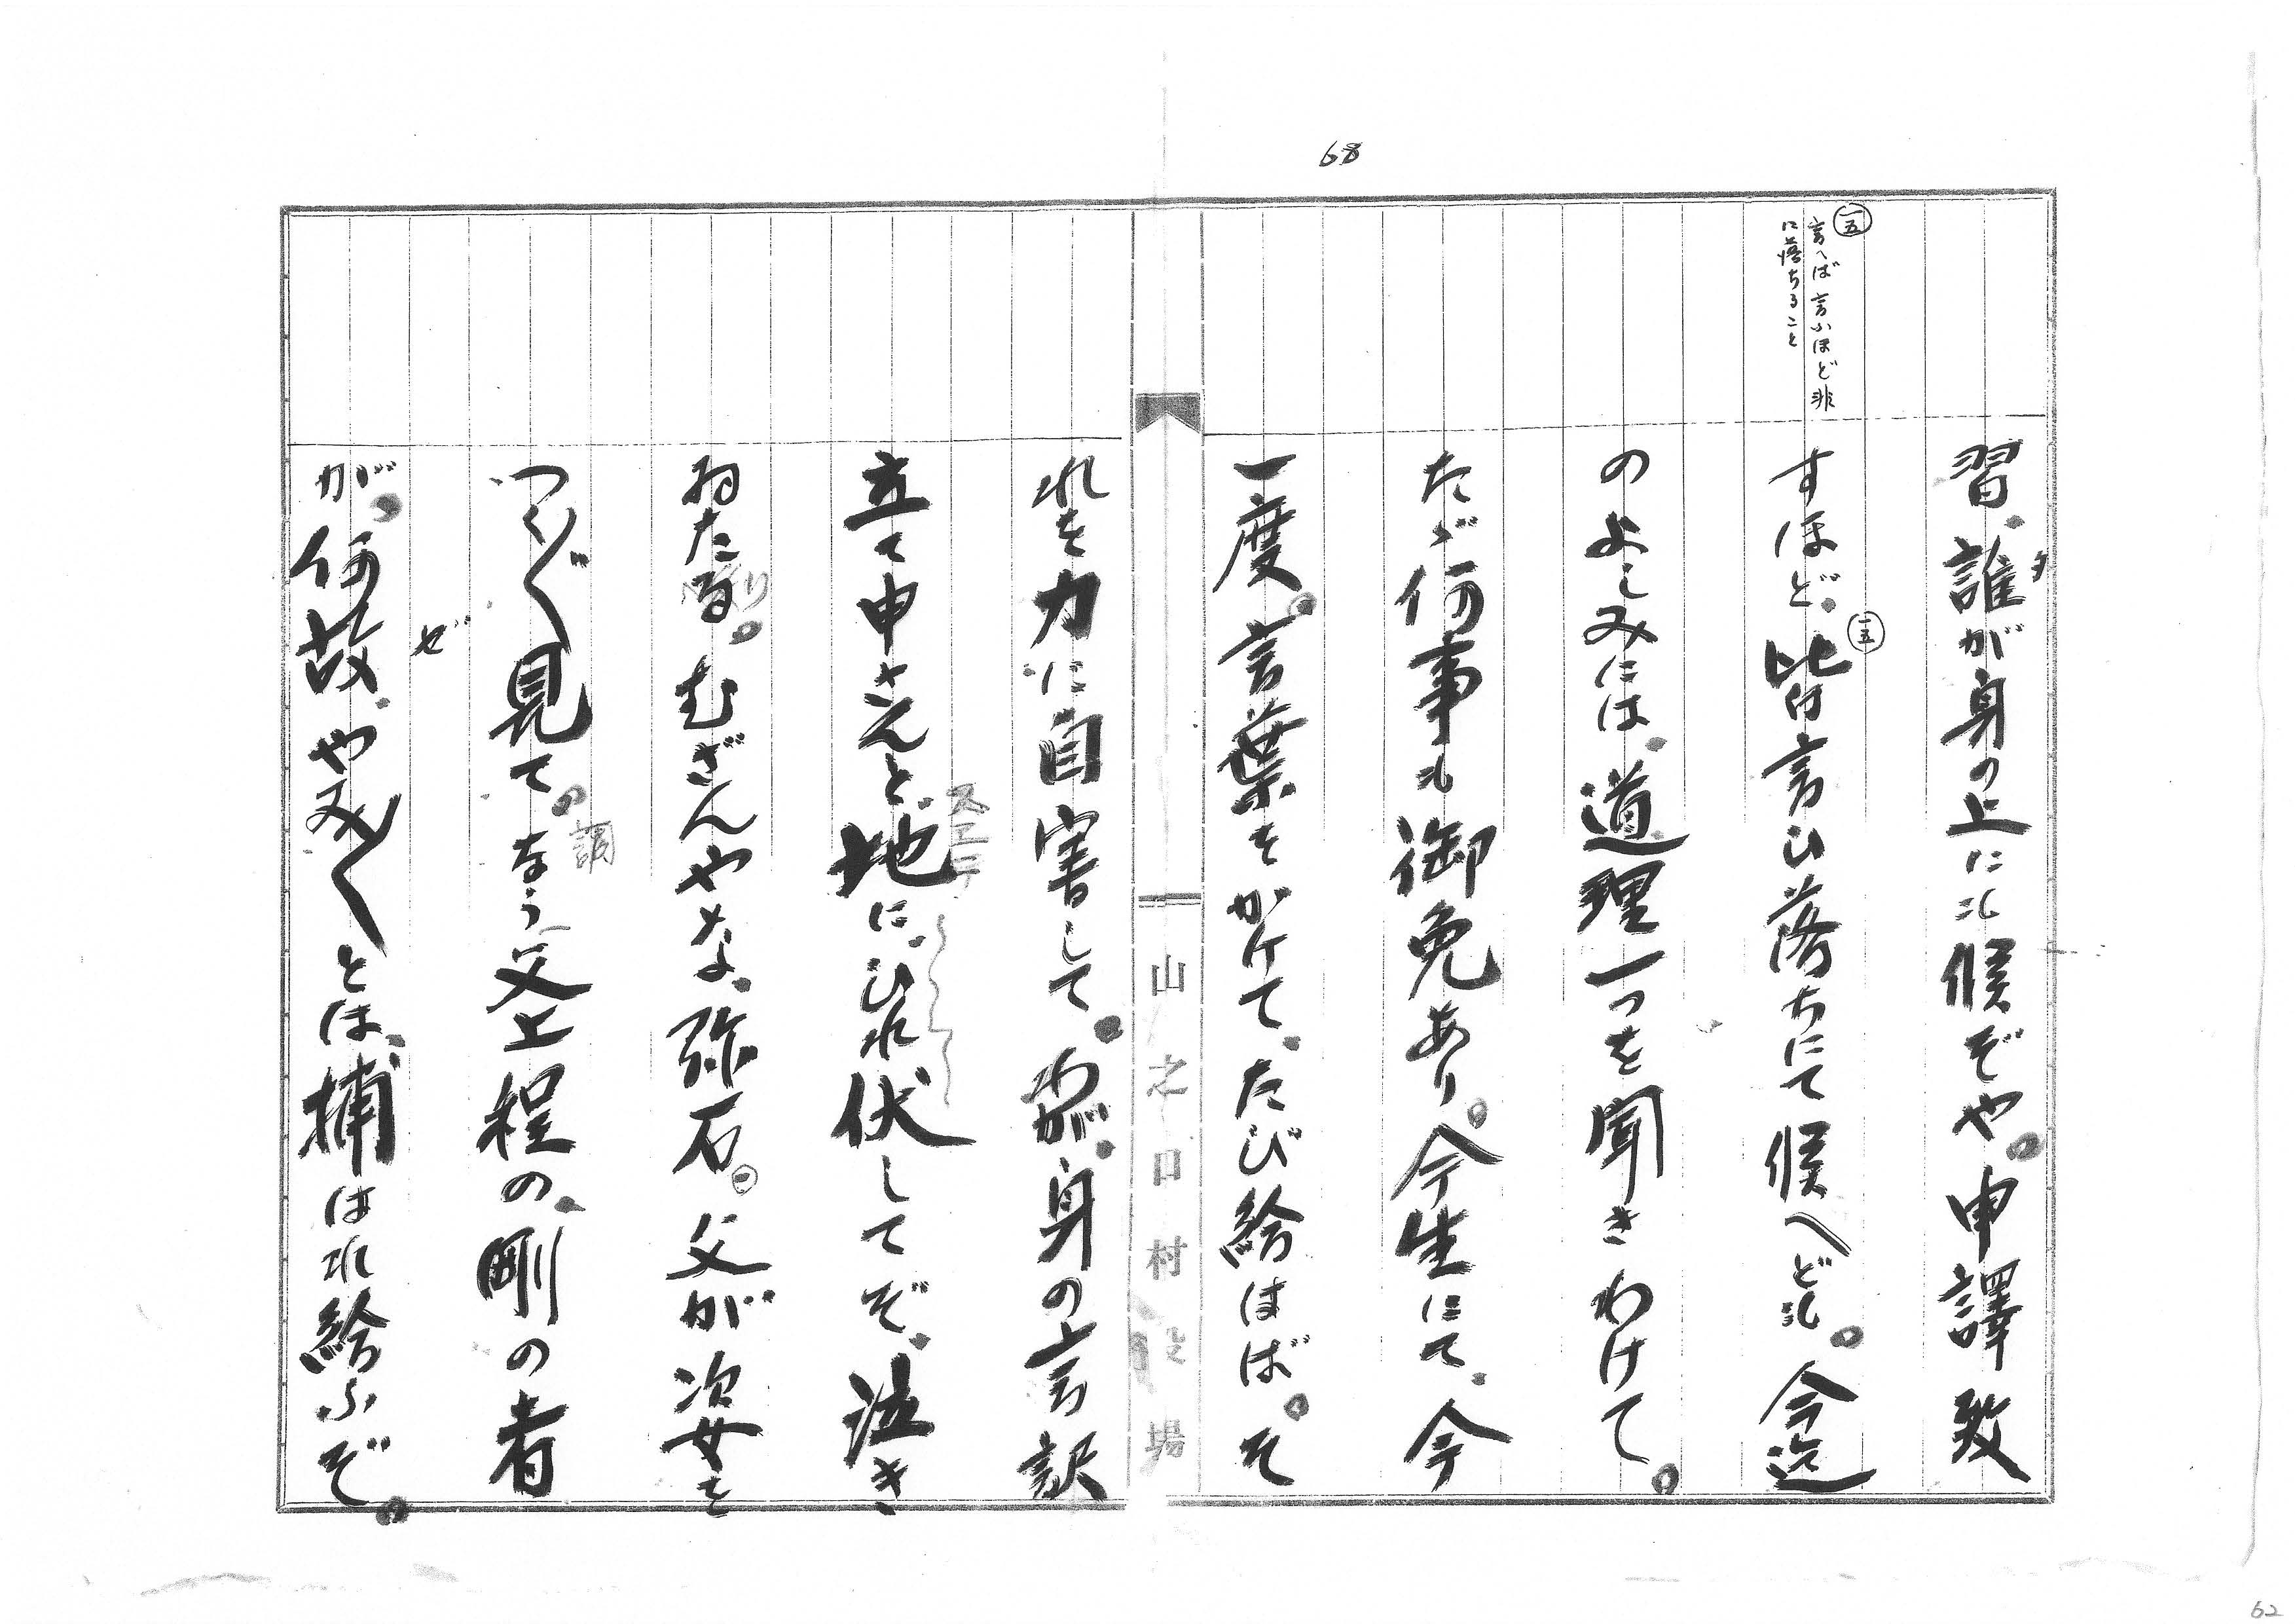 68
㊀五
言へば言ふほど非
に落ちること
習、誰が身の上にも候ぞや。申譯致
タ
すほど、皆言ひ落ちにて候へども。今迄
一五
のよしみには、道理一つを聞きわけて。
たゞ何事も御免あり。今生にて、今
一度。言葉をがけて、たび給はば。そ
れを力に自害して。わが身の言訳
立て申さんと地に、ひれ伏してぞ、泣き
スエテ
ゐたる。むざんやな、弥石。父が姿を
り
つく〴〵見て。なう父上程の、剛の者
詞
が、何故、やみ〳〵とは、捕はれ給ふぞ。
ぜ
山之口村役場
62